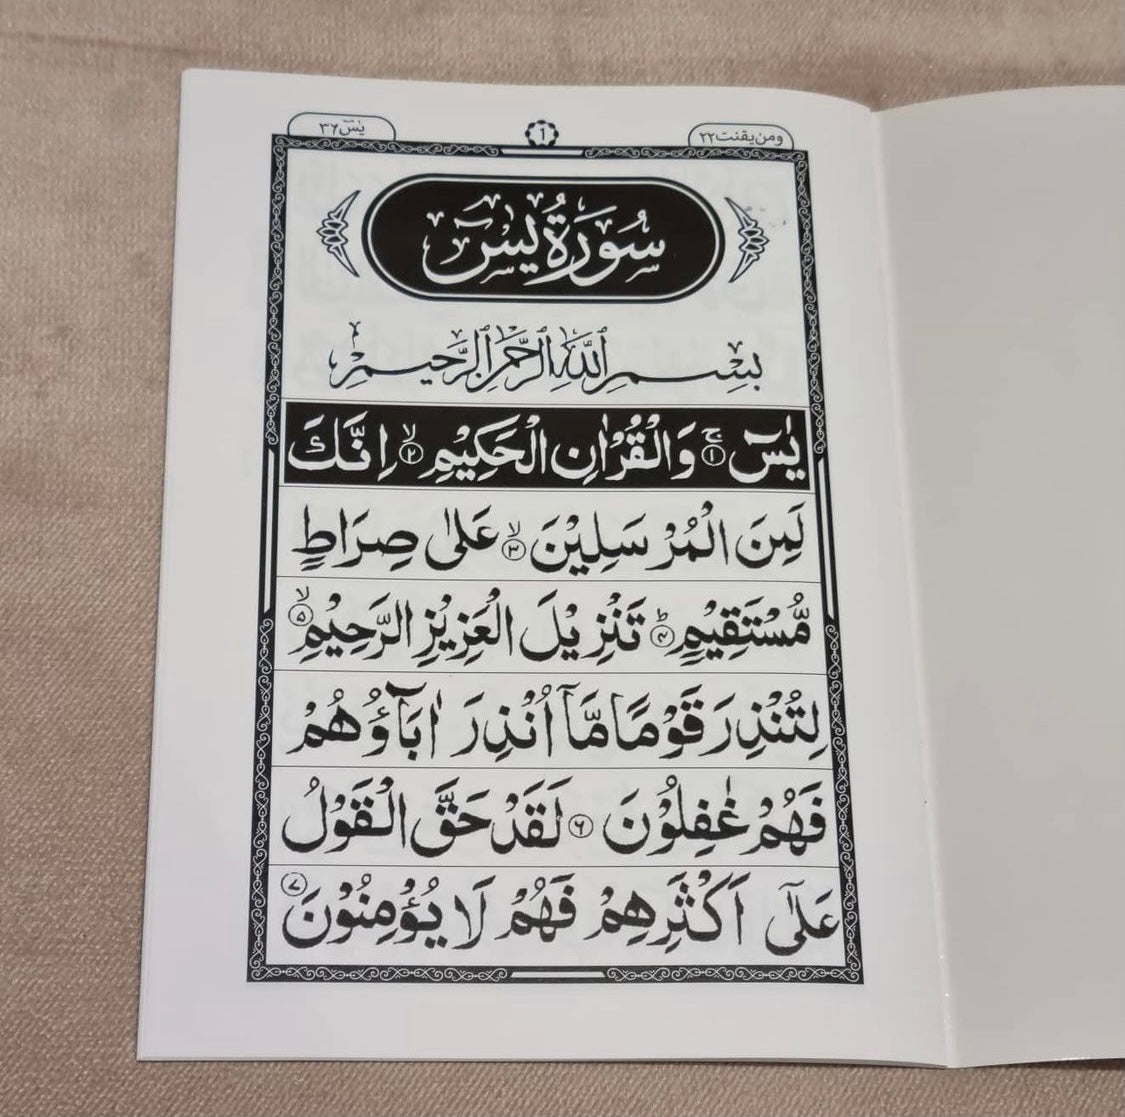 ومن يقنت ٢٢ ١ يٰسٓ ٣٦
سُوْرَةُ يٰسٓ
بِسْمِ اللّٰهِ الرَّحْمٰنِ الرَّحِيْمِ
يٰسٓ ۚ﴿۱﴾ وَالْقُرْاٰنِ الْحَكِيْمِ ۙ﴿۲﴾ اِنَّكَ
لَمِنَ الْمُرْسَلِيْنَ ۙ﴿۳﴾ عَلٰى صِرَاطٍ
مُّسْتَقِيْمٍ ؕ﴿۴﴾ تَنْزِيْلَ الْعَزِيْزِ الرَّحِيْمِ ۙ﴿۵﴾
لِتُنْذِرَ قَوْمًا مَّاۤ اُنْذِرَ اٰبَآؤُهُمْ
فَهُمْ غٰفِلُوْنَ ﴿۶﴾ لَقَدْ حَقَّ الْقَوْلُ
عَلٰۤى اَكْثَرِهِمْ فَهُمْ لَا يُؤْمِنُوْنَ ﴿۷﴾